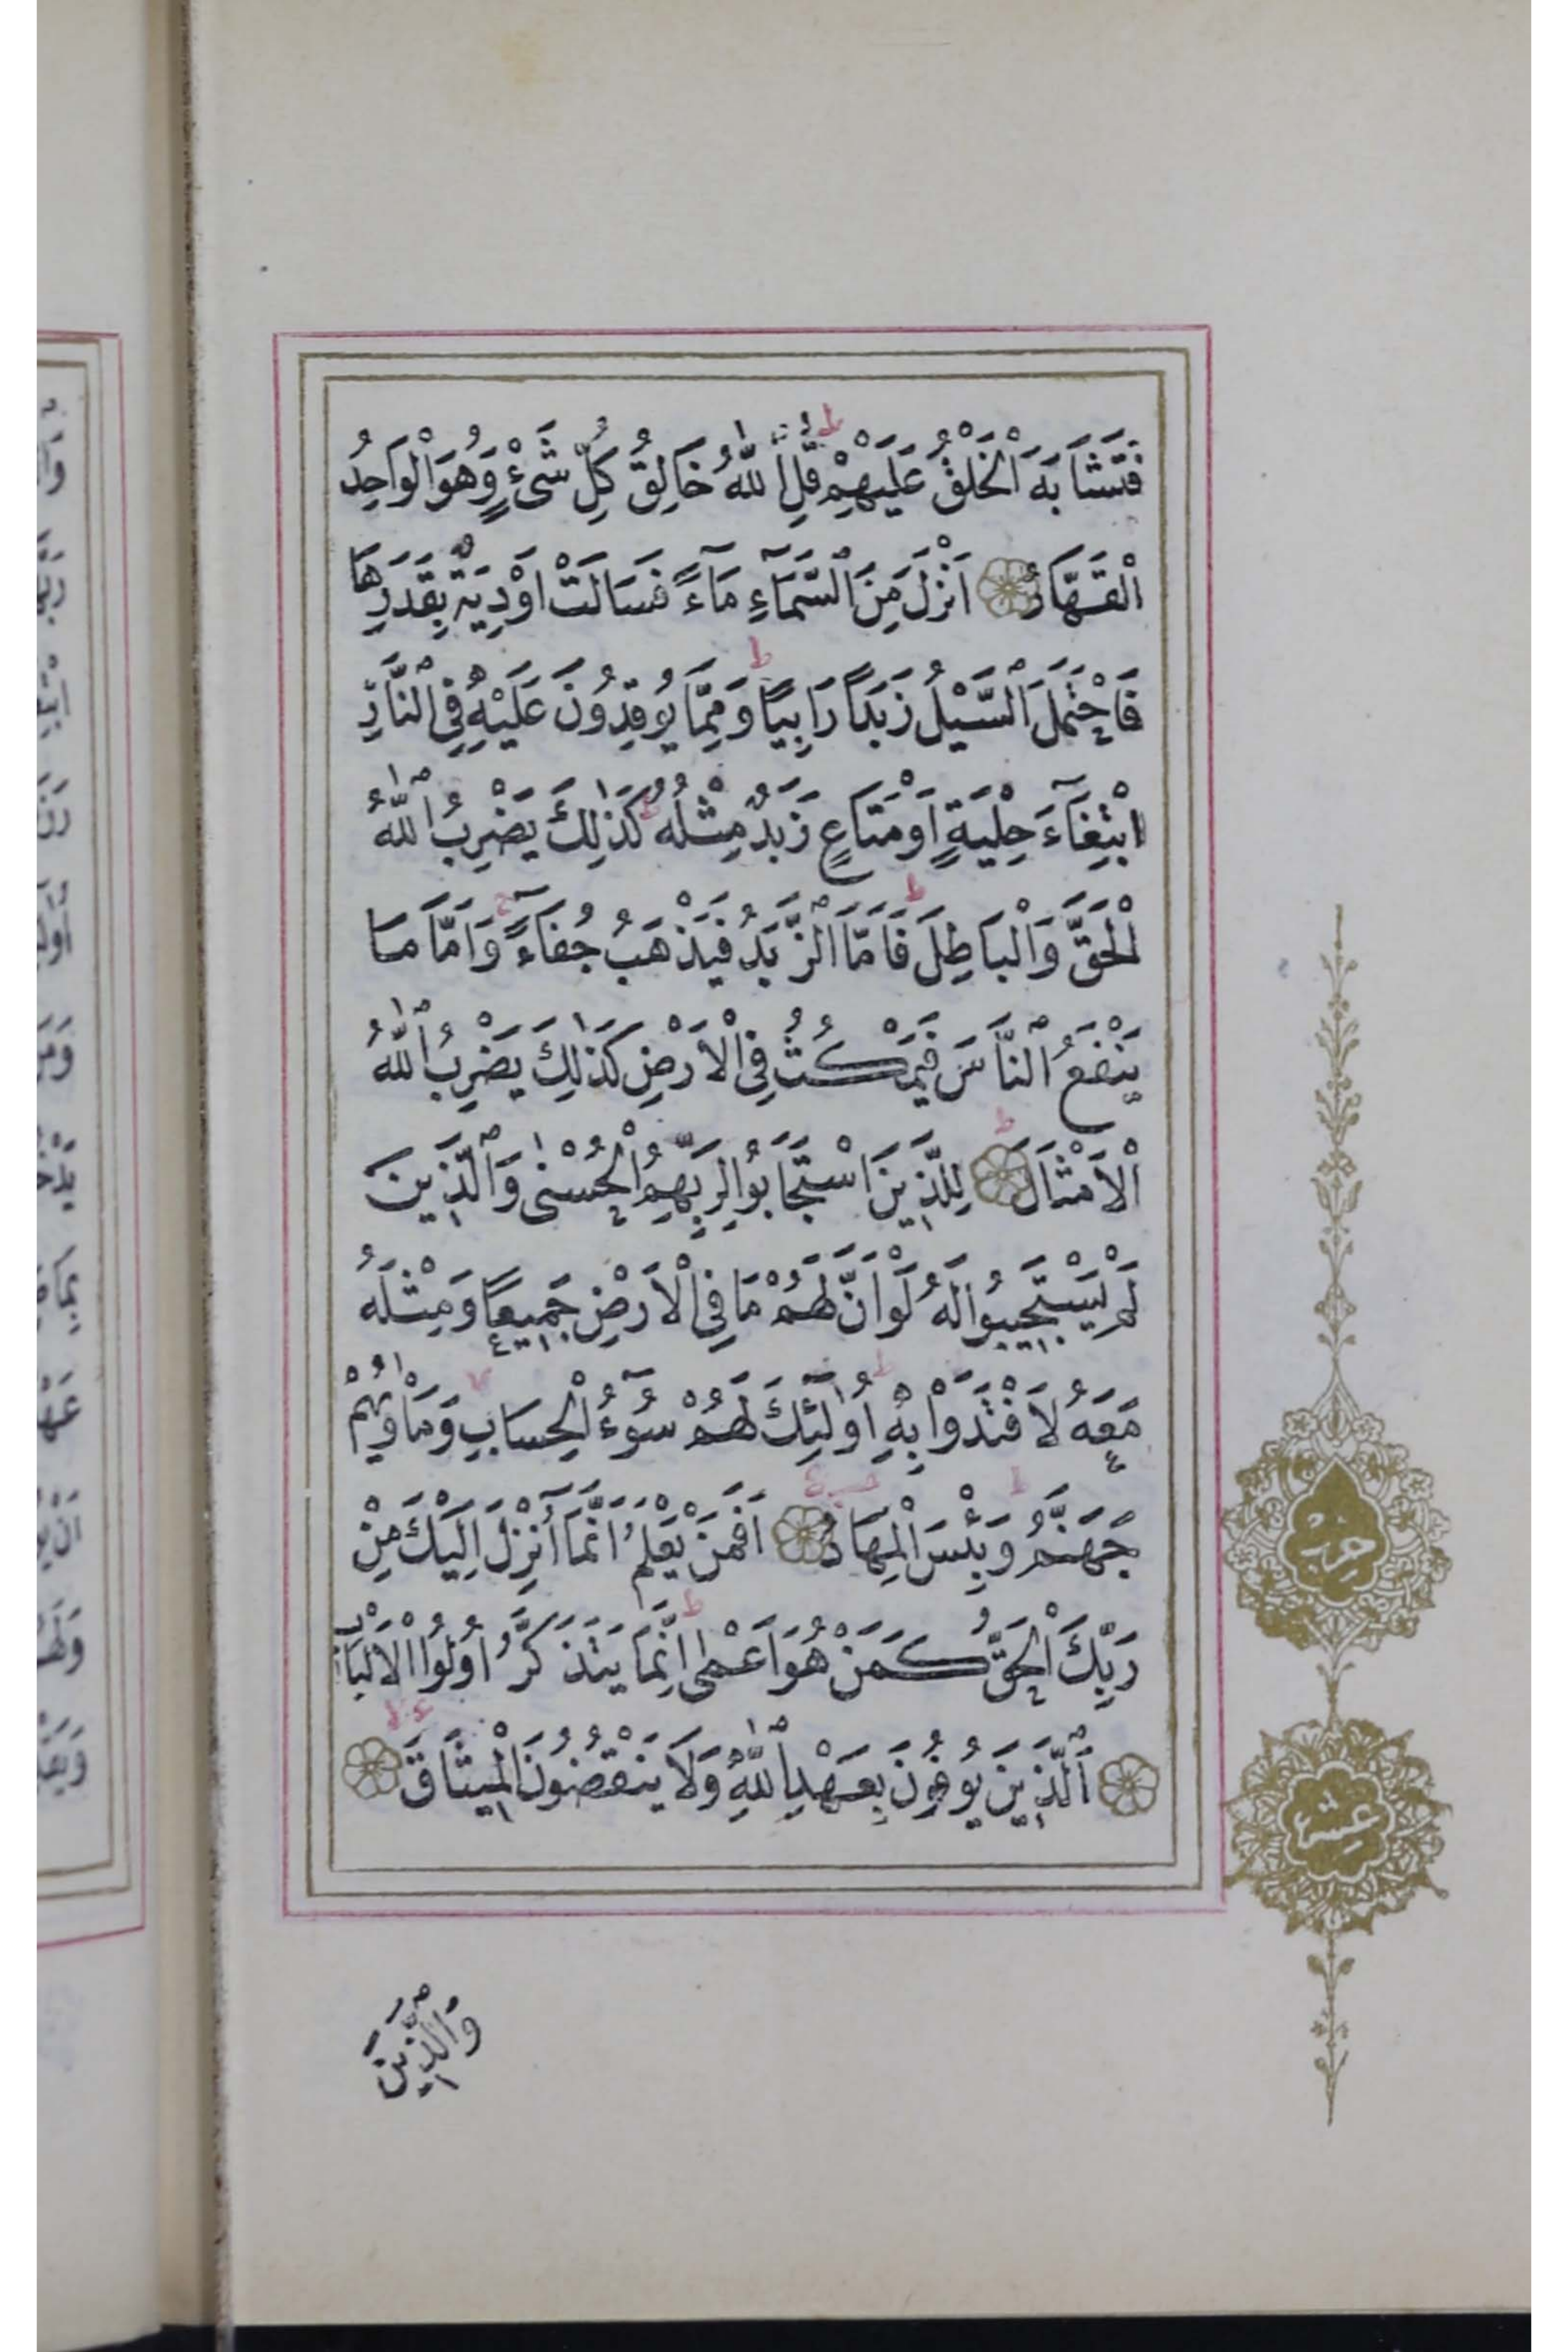 فَتَشَابَهَ الْخَلْقُ عَلَيْهِمْ قُلِ اللّٰهُ خَالِقُ كُلِّ شَىْءٍ وَهُوَ الْوَاحِدُ
الْقَهَّارُ اَنْزَلَ مِنَ السَّمَآءِ مَآءً فَسَالَتْ اَوْدِيَةٌ بِقَدَرِهَا
فَاحْتَمَلَ السَّيْلُ زَبَدًا رَابِيًا وَمِمَّا يُوقِدُونَ عَلَيْهِ فِى النَّارِ
ابْتِغَآءَ حِلْيَةٍ اَوْ مَتَاعٍ زَبَدٌ مِثْلُهُ كَذٰلِكَ يَضْرِبُ اللّٰهُ
الْحَقَّ وَالْبَاطِلَ فَاَمَّا الزَّبَدُ فَيَذْهَبُ جُفَآءً وَاَمَّا مَا
يَنْفَعُ النَّاسَ فَيَمْكُثُ فِى الْاَرْضِ كَذٰلِكَ يَضْرِبُ اللّٰهُ
الْاَمْثَالَ لِلَّذِينَ اسْتَجَابُوا لِرَبِّهِمُ الْحُسْنٰى وَالَّذِينَ
لَمْ يَسْتَجِيبُوا لَهُ لَوْ اَنَّ لَهُمْ مَا فِى الْاَرْضِ جَمِيعًا وَمِثْلَهُ
مَعَهُ لَافْتَدَوْا بِهِ اُولٰٓئِكَ لَهُمْ سُوٓءُ الْحِسَابِ وَمَاْوٰيهُمْ
جَهَنَّمُ وَبِئْسَ الْمِهَادُ اَفَمَنْ يَعْلَمُ اَنَّمَآ اُنْزِلَ اِلَيْكَ مِنْ
رَبِّكَ الْحَقُّ كَمَنْ هُوَ اَعْمٰى اِنَّمَا يَتَذَكَّرُ اُولُوا الْاَلْبَابِ
اَلَّذِينَ يُوفُونَ بِعَهْدِ اللّٰهِ وَلَا يَنْقُضُونَ الْمِيثَاقَ
وَالَّذِينَ
حزب
عشر